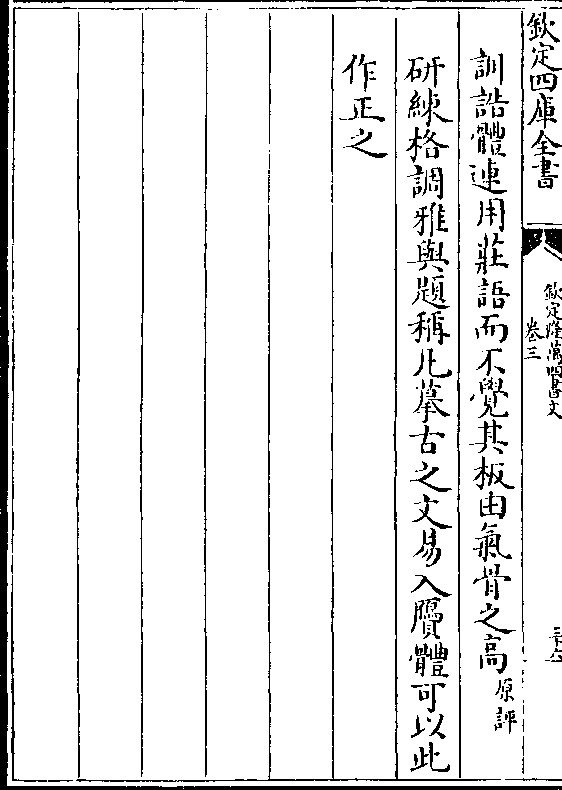 欽定四庫全書
欽定隆萬四書文
卷三
三十六
訓誥體連用莊語而不覺其板由氣骨之高原評
研練格調雅與題稱凡摹古之文易入贗體可以此
作正之